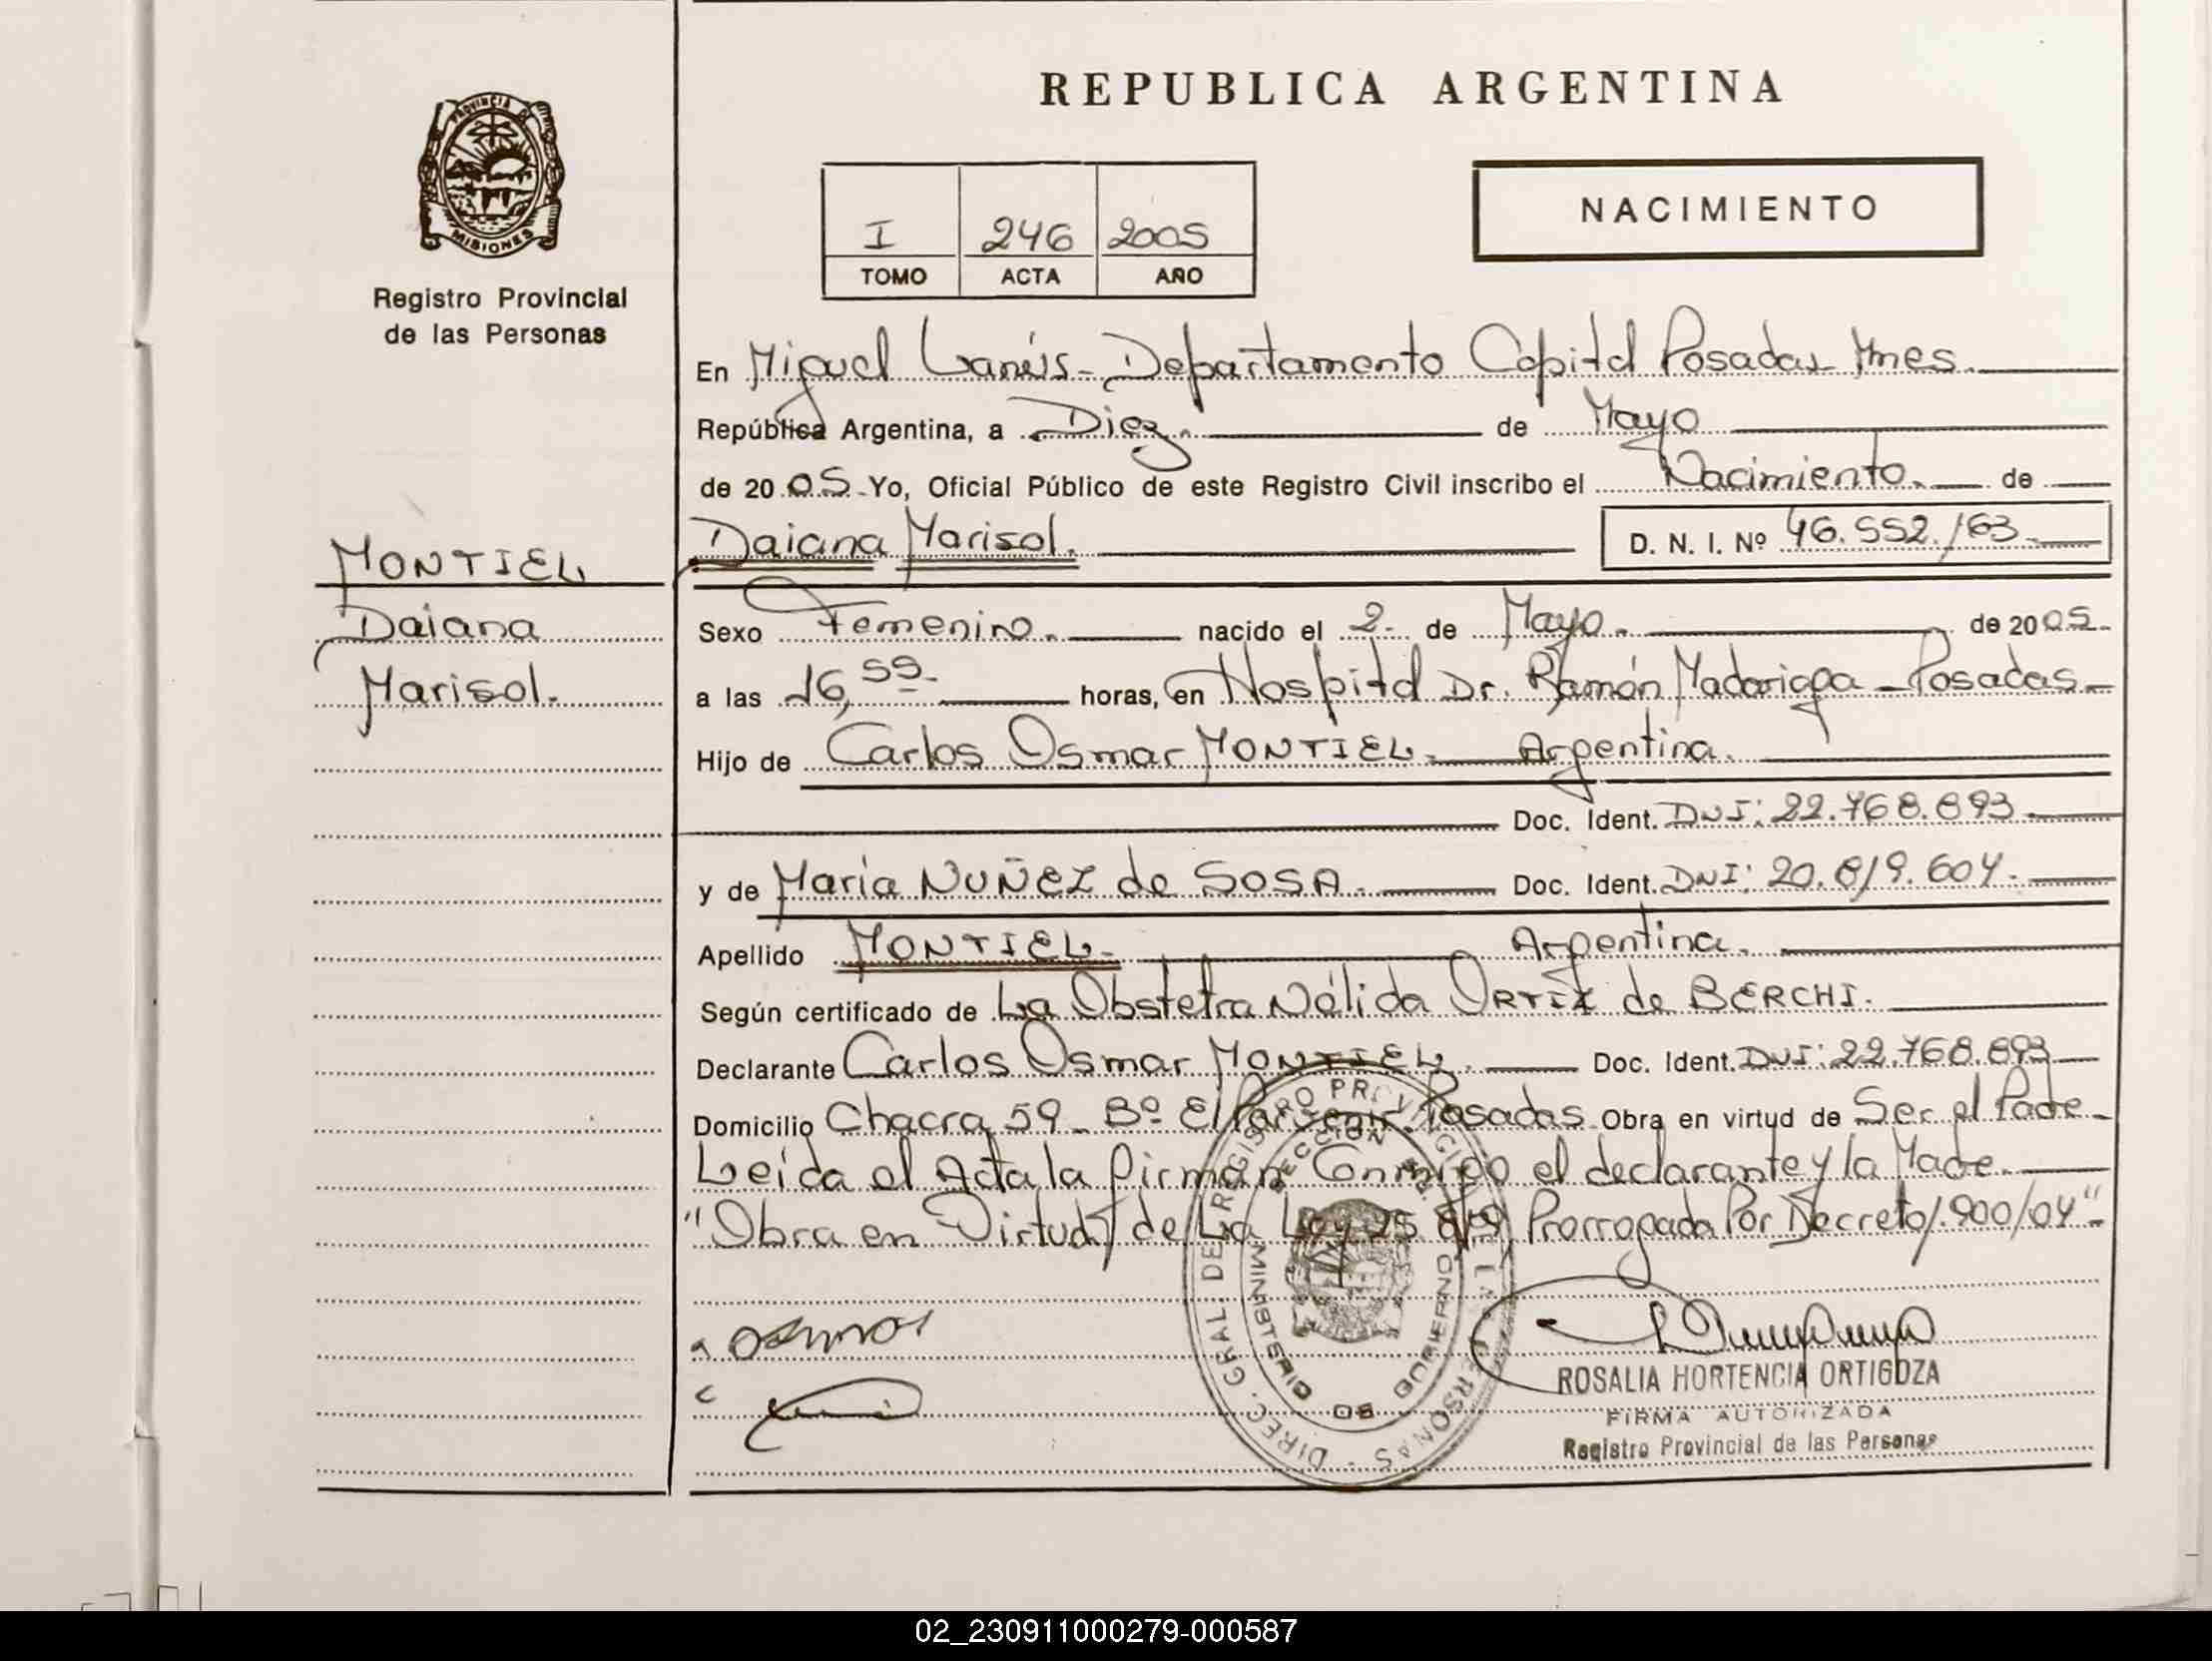 PROVINCIA DE
MISIONES
Registro Provincial
de las Personas
MONTIEL
Daiana
Marisol.
REPUBLICA ARGENTINA
I 246 2005
TOMO ACTA AÑO
NACIMIENTO
En Miguel Lanús - Departamento Capital Posadas Mnes.
República Argentina, a Diez. de Mayo
de 2005 Yo, Oficial Público de este Registro Civil inscribo el Nacimiento. de
Daiana Marisol. D. N. I. Nº 46.552.163
Sexo Femenino. nacido el 2 de Mayo. de 2005.
a las 16,55 horas, en Hospital Dr. Ramón Madariaga - Posadas
Hijo de Carlos Osmar MONTIEL. Argentina.
Doc. Ident. DNI: 22.768.893
y de María NUÑEZ de SOSA. Doc. Ident. DNI: 20.819.604.
Apellido MONTIEL. Argentina.
Según certificado de La Obstetra Nélida ORTIZ de BERCHI.
Declarante Carlos Osmar MONTIEL. Doc. Ident. DNI: 22.768.893
Domicilio Chacra 59 - Bº El Porvenir. Posadas Obra en virtud de Ser el Padre
Leída el Acta la firman Conmigo el declarante y la Madre.
"Obra en Virtud de La Ley 25.819 Prorrogada Por Decreto 1.900/04"
DIREC. GRAL. DE REGISTRO PROVINCIAL DE LAS PERSONAS
MINISTERIO DE GOBIERNO
ROSALIA HORTENCIA ORTIGOZA
FIRMA AUTORIZADA
Registro Provincial de las Personas
02_230911000279-000587